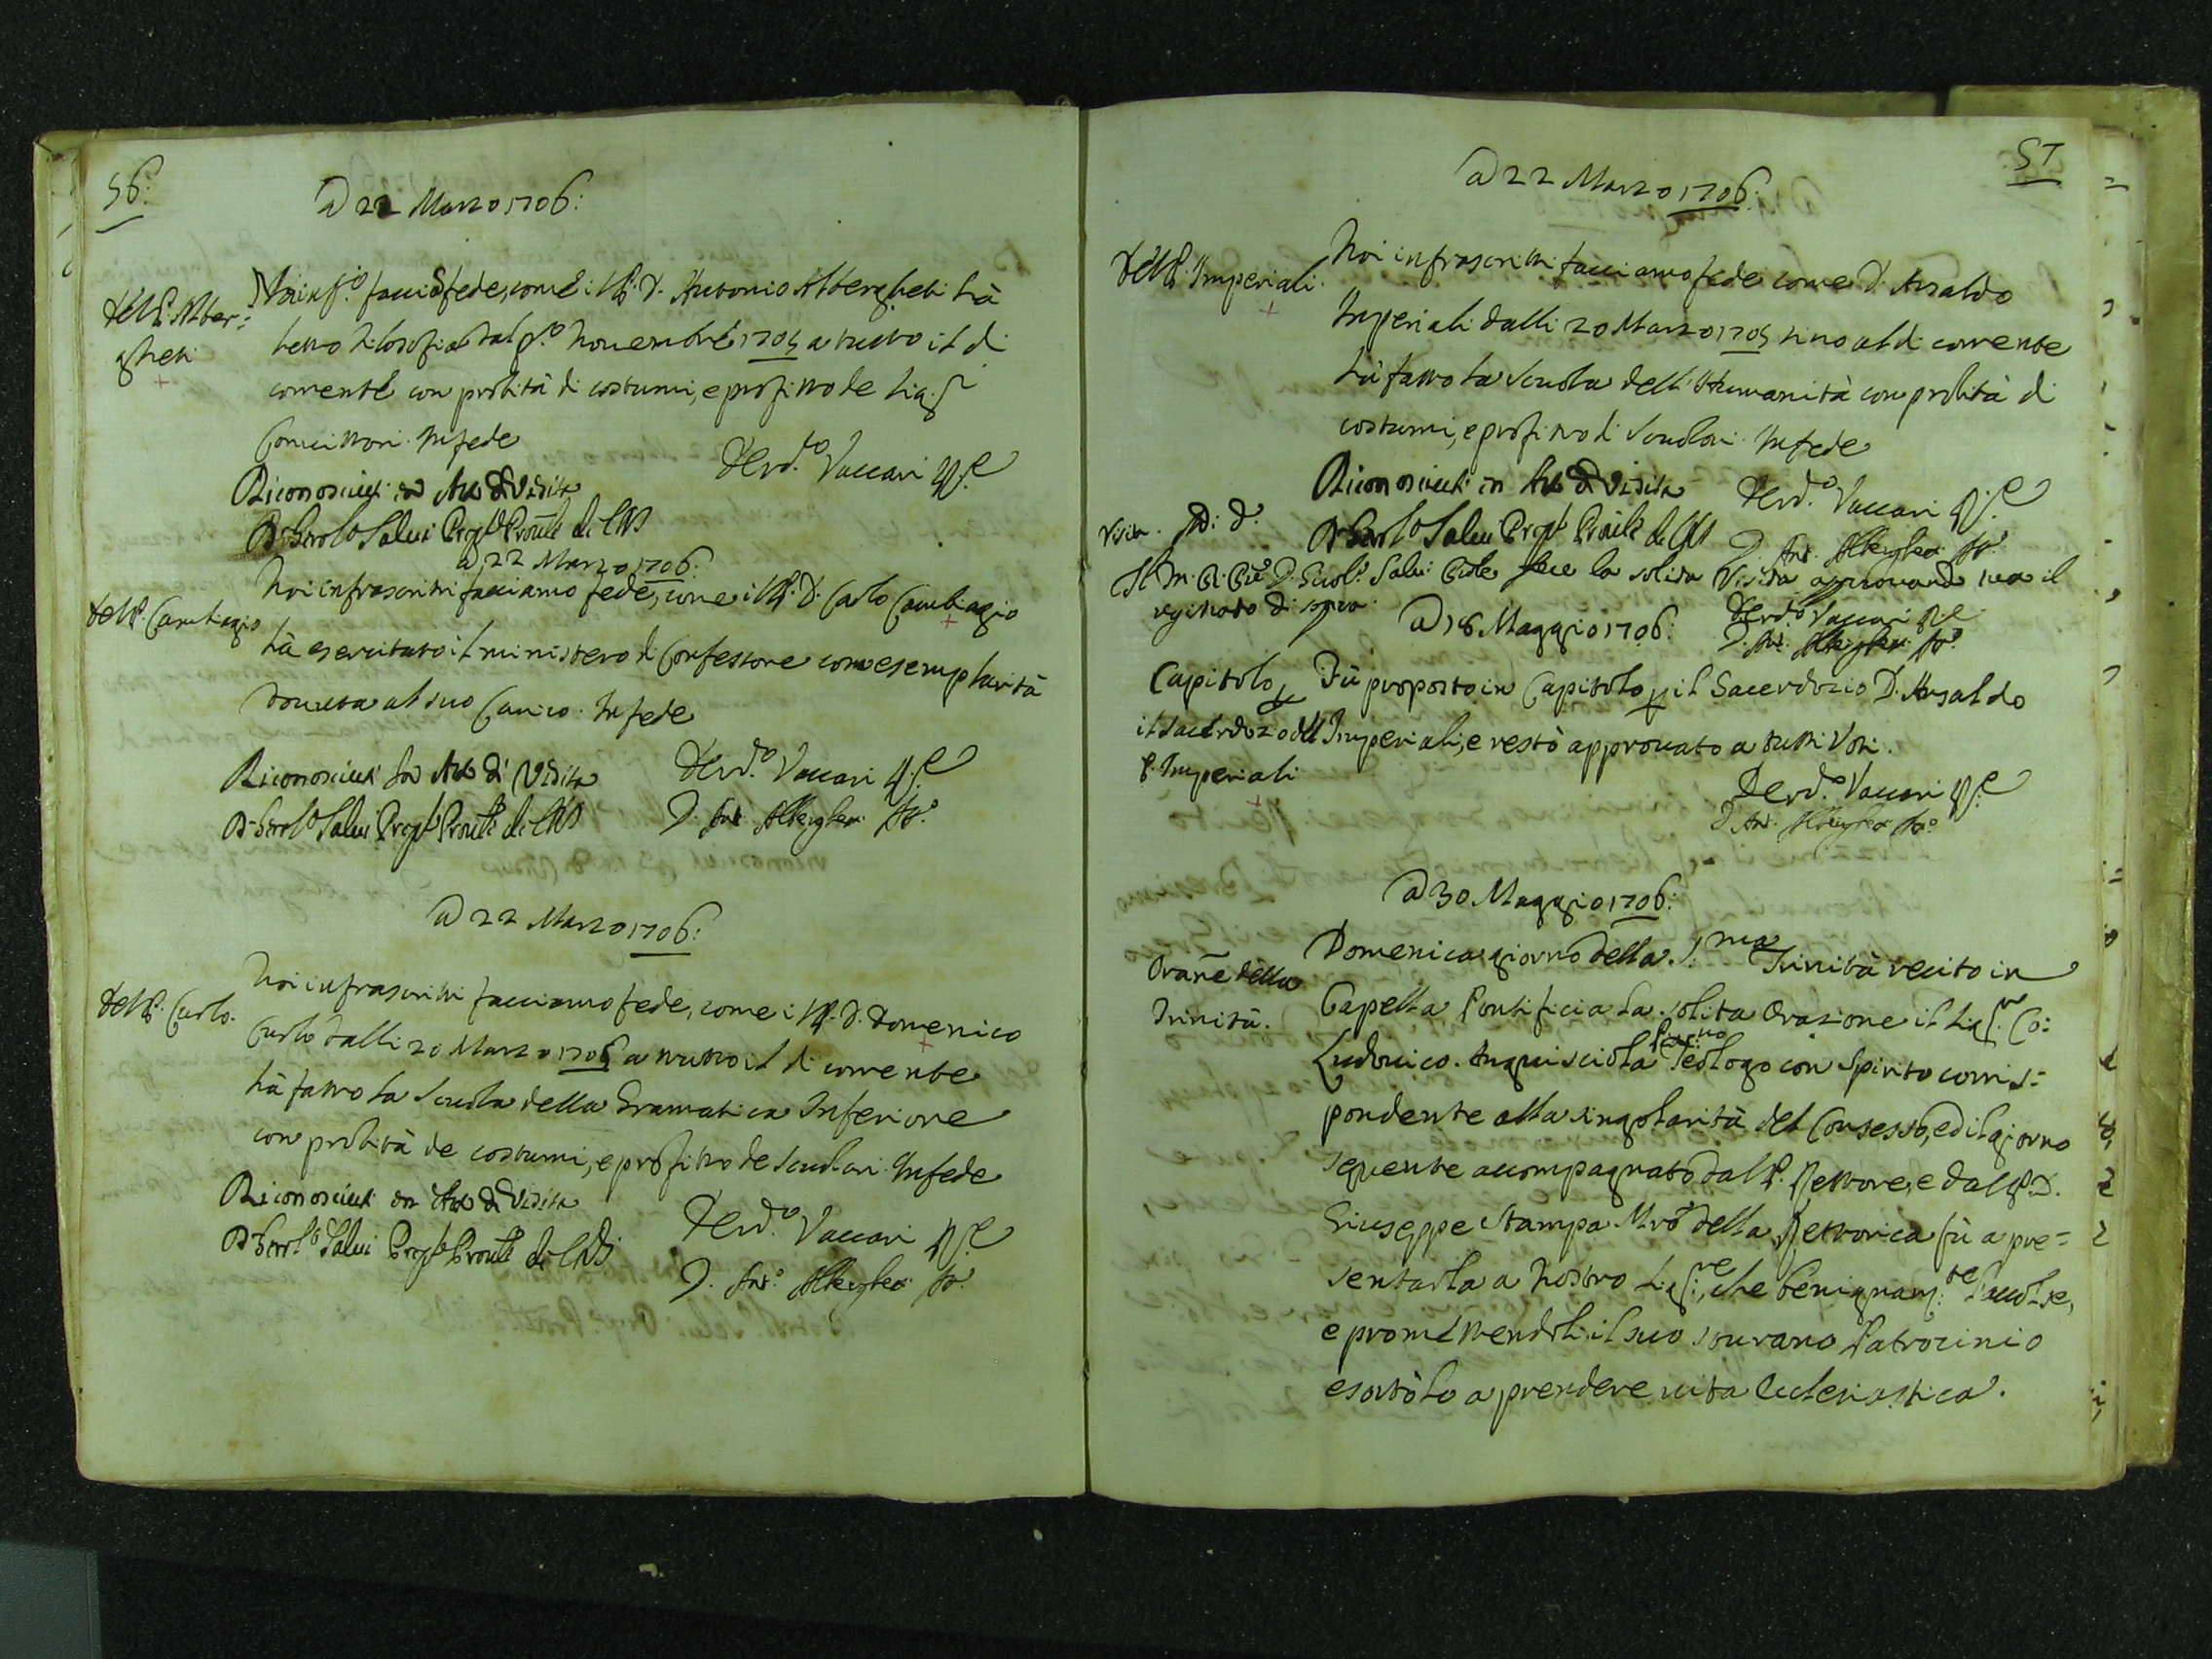 56:
A 22 Marzo 1706:
Del P. Alber=
gheti
Noi inf.o facci fede, come il P. D. Antonio Alberghetti hà
letto Filosofia dal p.o Novembre 1705 a tutto il dì
corrente con probità di costumi, e profitto de Sig.ri
Convittori. In fede
Ferd.o Vaccari
Riconosciuti in Atto di Visita
D. Girol.o Salvi Prep.to Prov.le
A 22 Marzo 1706:
Del P. Cambiagio
Noi infrascritti facciamo fede, come il P. D. Carlo Cambiagio
hà esercitato il ministero di Confessore con esemplarità
dovuta al suo Carico. In fede
Riconosciuti in Atto di Visita
Ferd.o Vaccari
D. Girol.o Salvi Prep.to Prov.le
D. Ant. Alberghetti
A 22 Marzo 1706:
Del P. Curlo.
Noi infrascritti facciamo fede, come il P. D. Domenico
Curlo dalli 20 Marzo 1705 a tutto il dì corrente
hà fatto la Scuola della Gramatica Inferiore
con probità de costumi, e profitto de Scolari. In fede
Riconosciuti in Atto di Visita
Ferd.o Vaccari
D. Girol.o Salvi Prep.to Prov.le
D. Ant.o Alberghetti
57
A 22 Marzo 1706:
Del P. Imperiali.
Noi infrascritti facciamo fede come D. Ansaldo
Imperiali dalli 20 Marzo 1705 sino al dì corrente
hà fatto la Scuola dell'Humanità con probità di
costumi, e profitto di Scolari. In fede
Riconosciuti in Atto di Visita
Ferd.o Vaccari
D. Girol.o Salvi Prep.to Prov.le
D. Ant. Alberghetti
Il M. R. D. Girol.o Salvi fece la solita Visita approvando il
registrato di sopra.
Ferd.o Vaccari
D. Ant. Alberghetti
A 18 Maggio 1706:
Capitolo
il Sacerdozio del
P. Imperiali
Fù proposto in Capitolo il Sacerdozio D. Ansaldo
Imperiali, e restò approvato a tutti Voti.
Ferd.o Vaccari
D. Ant. Alberghetti
A 30 Maggio 1706:
Orañe della
Trinità.
Domenica giorno della S.ma Trinità recito in
Capella Pontificia la solita Orazione il Sig.re Co:
Ludovico Anguisciola Teologo con Spirito corris=
pondente alla singolarità del Consesso, ed il giorno
seguente accompagnato dal P. Rettore, e dal P. D.
Giuseppe Stampa Mrõ della Rettorica fù a pre=
sentarla a Nostro Sig.re, che benignam.te l'accolse,
e promettendoli il suo sourano Patrocinio
esortòlo a prendere vita Ecclesiastica.